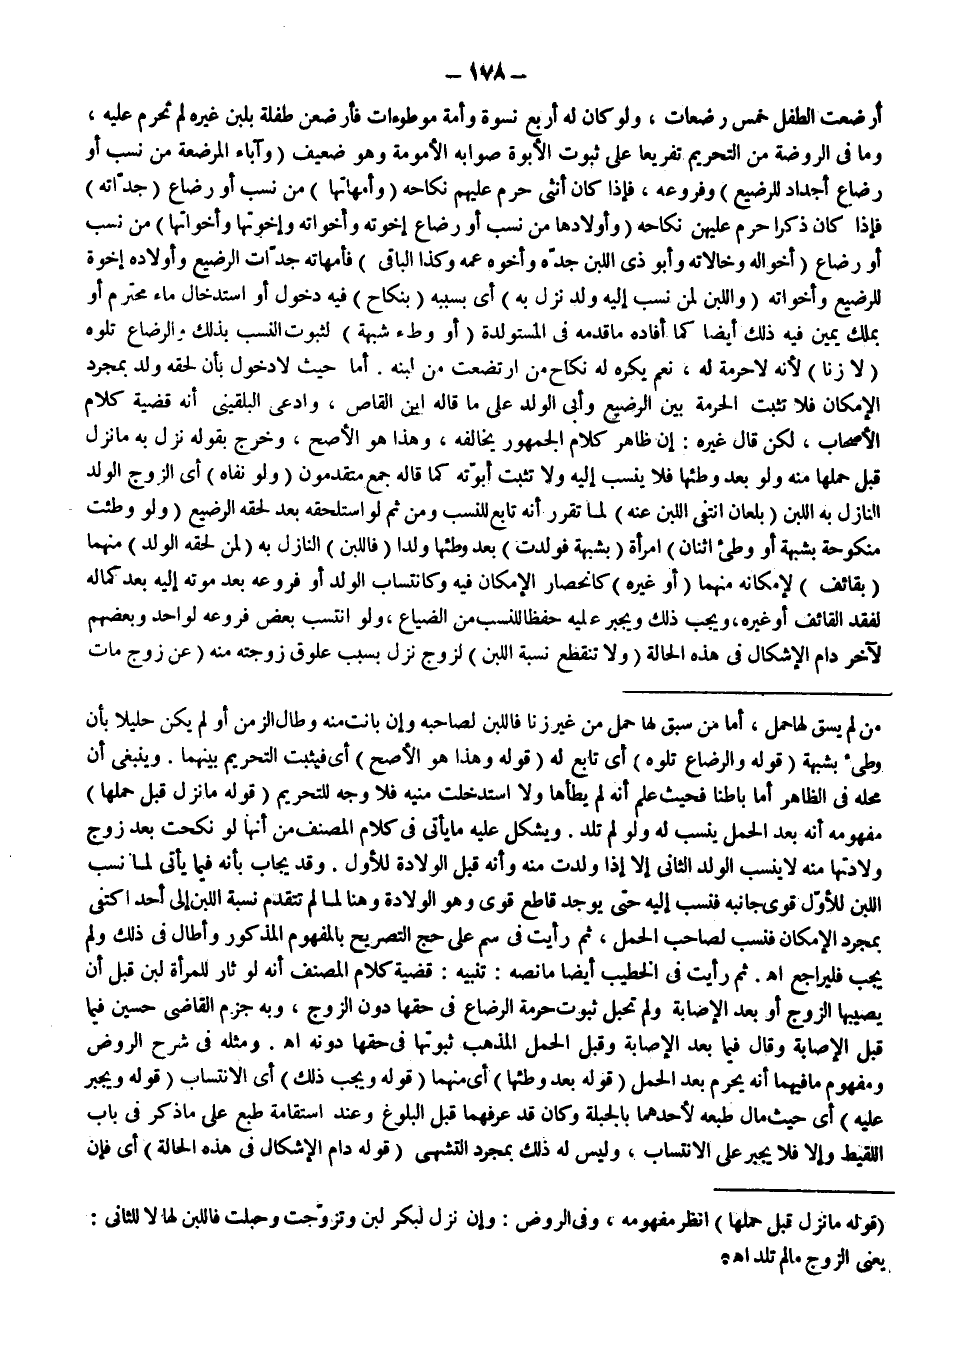 – ١٧٨ –
أرضعت الطفل خمس رضعات ، ولو كان له أربع نسوة وأمة موطوءات فأرضعن طفلة بلبن غيره لم تحرم عليه ،
وما فى الروضة من التحريم تفريعا على ثبوت الأبوة صوابه الأمومة وهو ضعيف ( وآباء المرضعة من نسب أو
رضاع أجداد للرضيع ) وفروعه ، فإذا كان أنثى حرم عليهم نكاحه ( وأمهاتها ) من نسب أو رضاع ( جدّاته )
فإذا كان ذكرا حرم عليهن نكاحه ( وأولادها من نسب أو رضاع إخوته وأخواته وإخوتها وأخواتها ) من نسب
أو رضاع ( أخواله وخالاته وأبو ذى اللبن جدّه وأخوه عمه وكذا الباقى ) فأمهاته جدّات الرضيع وأولاده إخوة
للرضيع وأخواته ( واللبن لمن نسب إليه ولد نزل به ) أى بسببه ( بنكاح ) فيه دخول أو استدخال ماء محترم أو
بملك يمين فيه ذلك أيضا كما أفاده ماقدمه فى المستولدة ( أو وطء شبهة ) لثبوت النسب بذلك والرضاع تلوه
( لا زنا ) لأنه لاحرمة له ، نعم يكره له نكاح من ارتضعت من لبنه . أما حيث لادخول بأن لحقه ولد بمجرد
الإمكان فلا تثبت الحرمة بين الرضيع وأبى الولد على ما قاله ابن القاص ، وادعى البلقينى أنه قضية كلام
الأصحاب ، لكن قال غيره : إن ظاهر كلام الجمهور يخالفه ، وهذا هو الأصح ، وخرج بقوله نزل به مانزل
قبل حملها منه ولو بعد وطئها فلا ينسب إليه ولا تثبت أبوّته كما قاله جمع متقدمون ( ولو نفاه ) أى الزوج الولد
النازل به اللبن ( بلعان انتفى اللبن عنه ) لما تقرر أنه تابع للنسب ومن ثم لو استلحقه بعد لحقه الرضيع ( ولو وطئت
منكوحة بشبهة أو وطئ اثنان ) امرأة ( بشبهة فولدت ) بعد وطئها ولدا ( فاللبن ) النازل به ( لمن لحقه الولد ) منهما
( بقائف ) لإمكانه منهما ( أو غيره ) كانحصار الإمكان فيه وكانتساب الولد أو فروعه بعد موته إليه بعد كماله
لفقد القائف أوغيره، ويجب ذلك ويجبر عليه حفظا للنسب من الضياع ، ولو انتسب بعض فروعه لواحد وبعضهم
لآخر دام الإشكال فى هذه الحالة ( ولا تنقطع نسبة اللبن ) لزوج نزل بسبب علوق زوجته منه ( عن زوج مات
من لم يسق لها حمل ، أما من سبق لها حمل من غير زنا فاللبن لصاحبه وإن بانت منه وطال الزمن أو لم يكن حليلا بأن
وطىء بشبهة ( قوله والرضاع تلوه ) أى تابع له ( قوله وهذا هو الأصح ) أى فيثبت التحريم بينهما . وينبغى أن
محله فى الظاهر أما باطنا فحيث علم أنه لم يطأها ولا استدخلت منيه فلا وجه للتحريم ( قوله مانزل قبل حملها )
مفهومه أنه بعد الحمل ينسب له ولو لم تلد . ويشكل عليه مايأتى فى كلام المصنف من أنها لو نكحت بعد زوج
ولادتها منه لاينسب الولد الثانى إلا إذا ولدت منه وأنه قبل الولادة للأول . وقد يجاب بأنه فيما يأتى لما نسب
اللبن للأوّل قوى جانبه فنسب إليه حتى يوجد قاطع قوى وهو الولادة وهنا لما لم تتقدم نسبة اللبن إلى أحد اكتفى
بمجرد الإمكان فنسب لصاحب الحمل ، ثم رأيت فى سم على حج التصريح بالمفهوم المذكور وأطال فى ذلك ولم
يجب فليراجع اه . ثم رأيت فى الخطيب أيضا مانصه : تنبيه : قضية كلام المصنف أنه لو ثار للمرأة لبن قبل أن
يصيبها الزوج أو بعد الإصابة ولم تحبل ثبوت حرمة الرضاع فى حقها دون الزوج ، وبه جزم القاضى حسين فيما
قبل الإصابة وقال فيما بعد الإصابة وقبل الحمل المذهب ثبوتها فى حقها دونه اه . ومثله فى شرح الروض
ومفهوم مافيهما أنه يحرم بعد الحمل ( قوله بعد وطئها ) أى منهما ( قوله ويجب ذلك ) أى الانتساب ( قوله ويجبر
عليه ) أى حيث مال طبعه لأحدهما بالجبلة وكان قد عرفهما قبل البلوغ وعند استقامة طبع على ماذكر فى باب
اللقيط وإلا فلا يجبر على الانتساب ، وليس له ذلك بمجرد التشهى ( قوله دام الإشكال فى هذه الحالة ) أى فإن
( قوله مانزل قبل حملها ) انظر مفهومه ، وفى الروض : وإن نزل لبكر لبن وتزوّجت وحبلت فاللبن لها لا للثانى :
يعنى الزوج مالم تلد اه